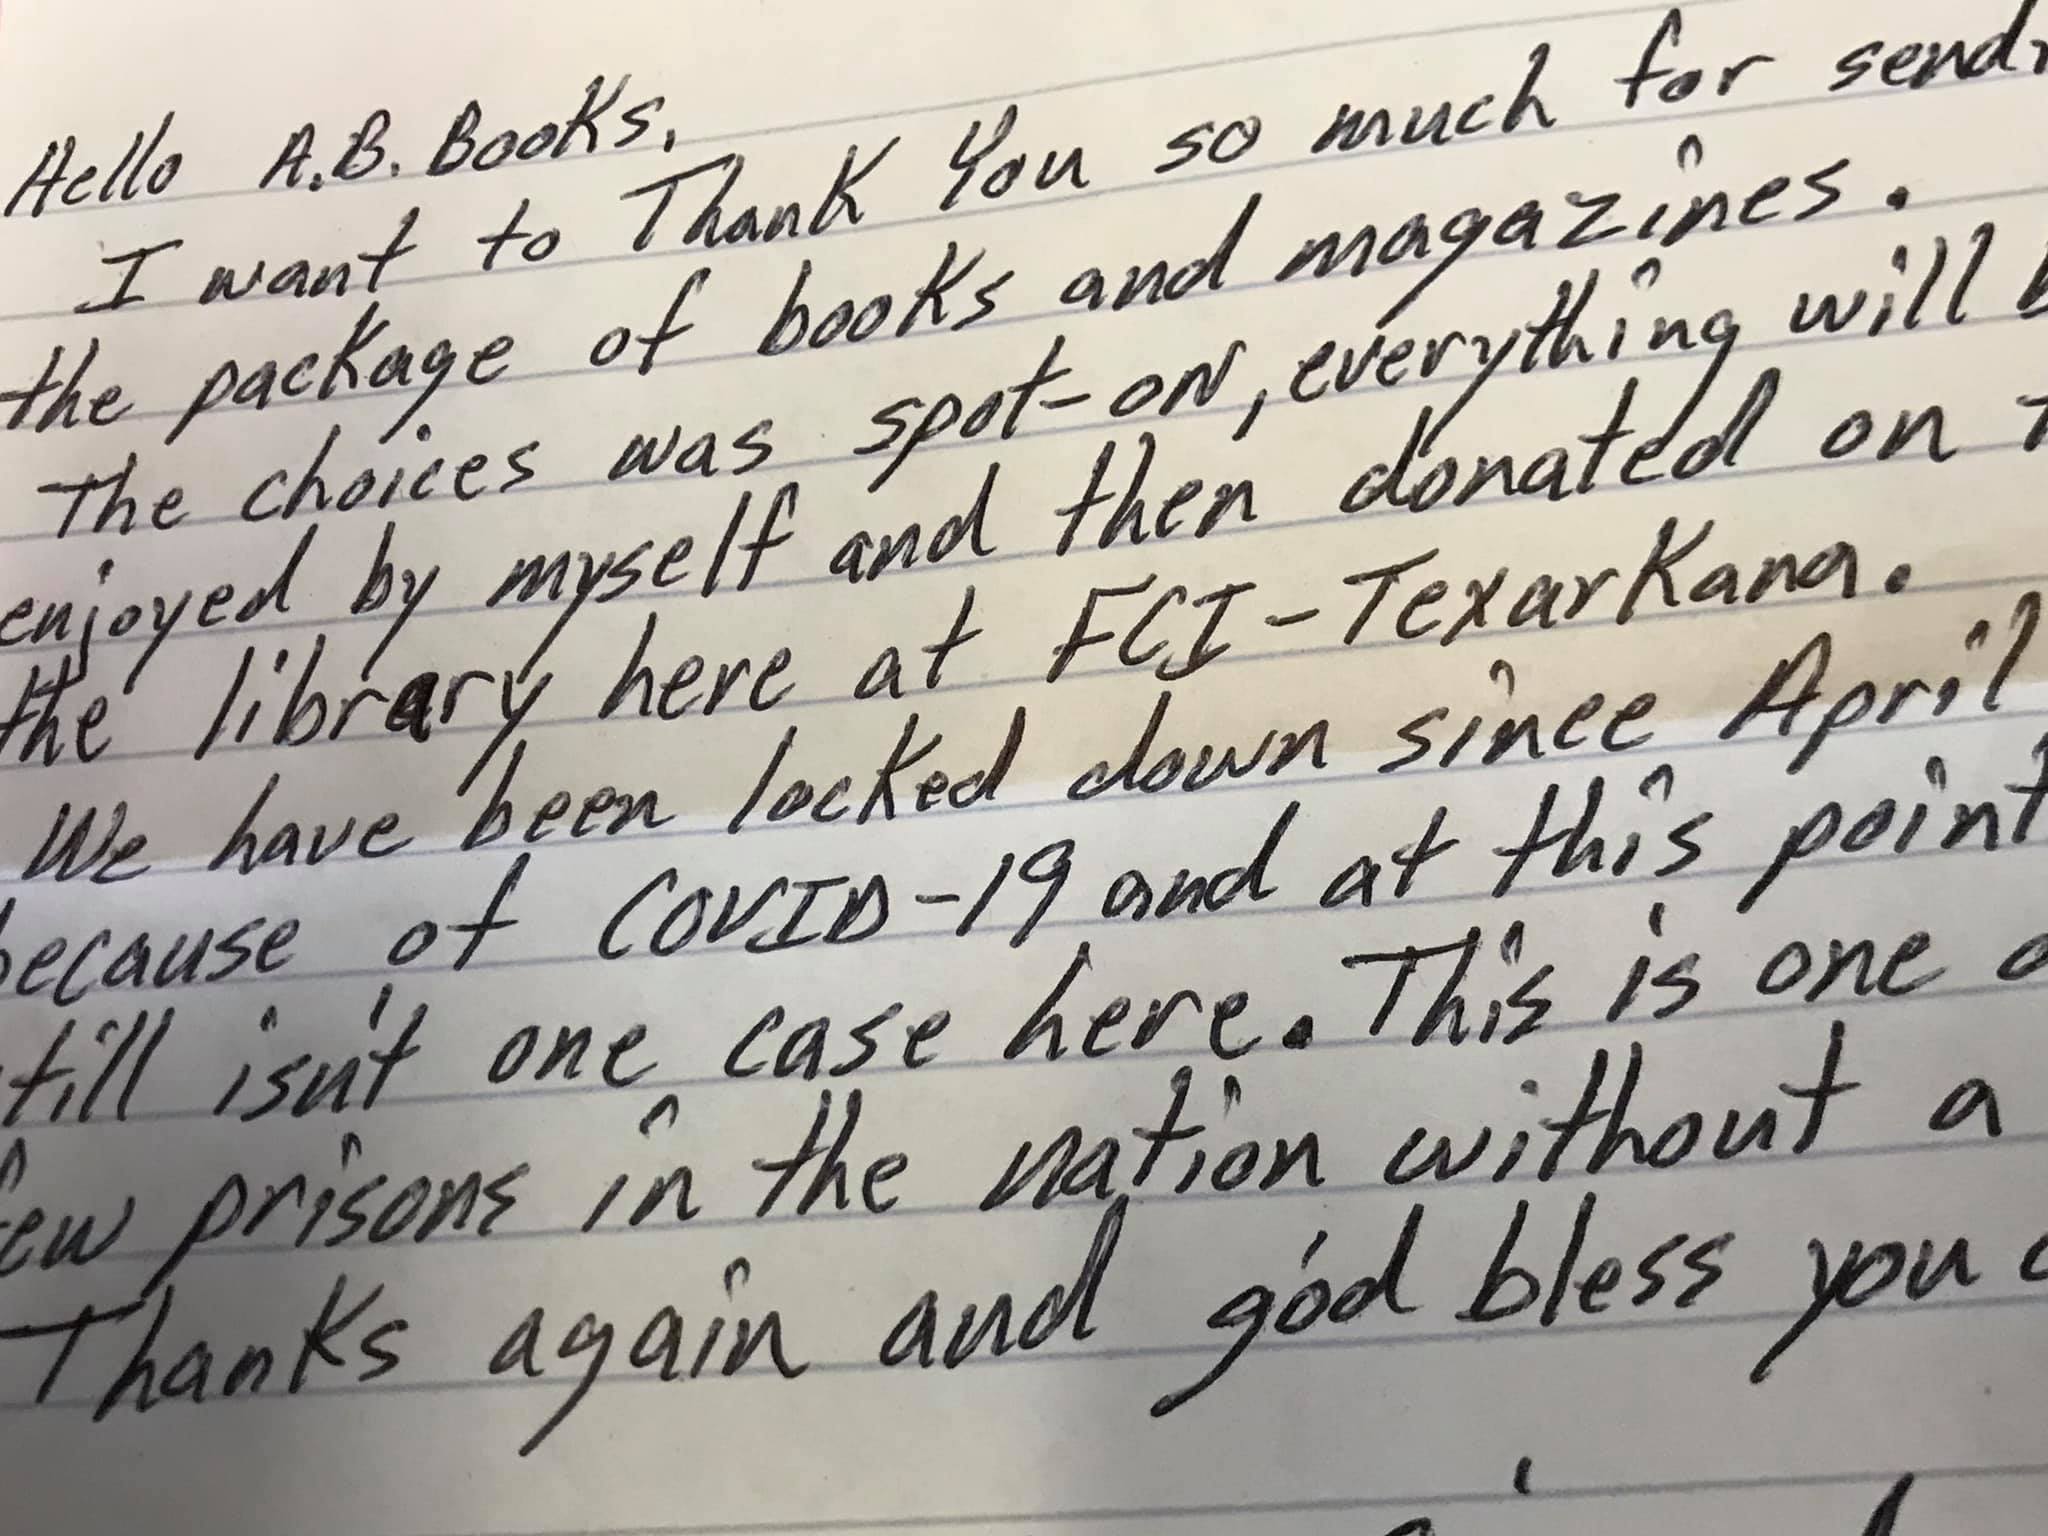 Hello A.B. Books,
I want to Thank You so much for
the package of books and magazines.
The choices was spot-on, everything will
enjoyed by myself and then donated on
the library here at FCI-Texarkana.
We have been locked down since April
because of COVID-19 and at this point
still isn't one case here. This is one
few prisons in the nation without a
Thanks again and god bless you